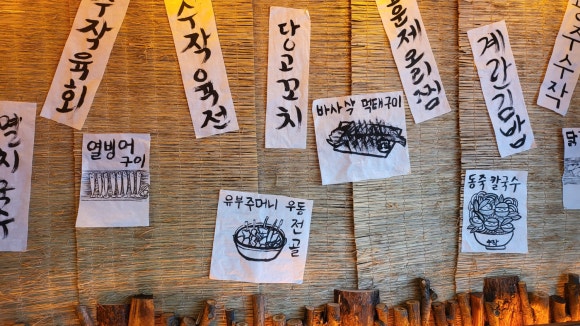 수작육회
수작육전
당고꼬치
훈제오리찜
계란김밥
주수작
멸치국수
열빙어
구이
바사삭 먹태구이
유부주머니 우동
전골
동죽 칼국수
수작
닭